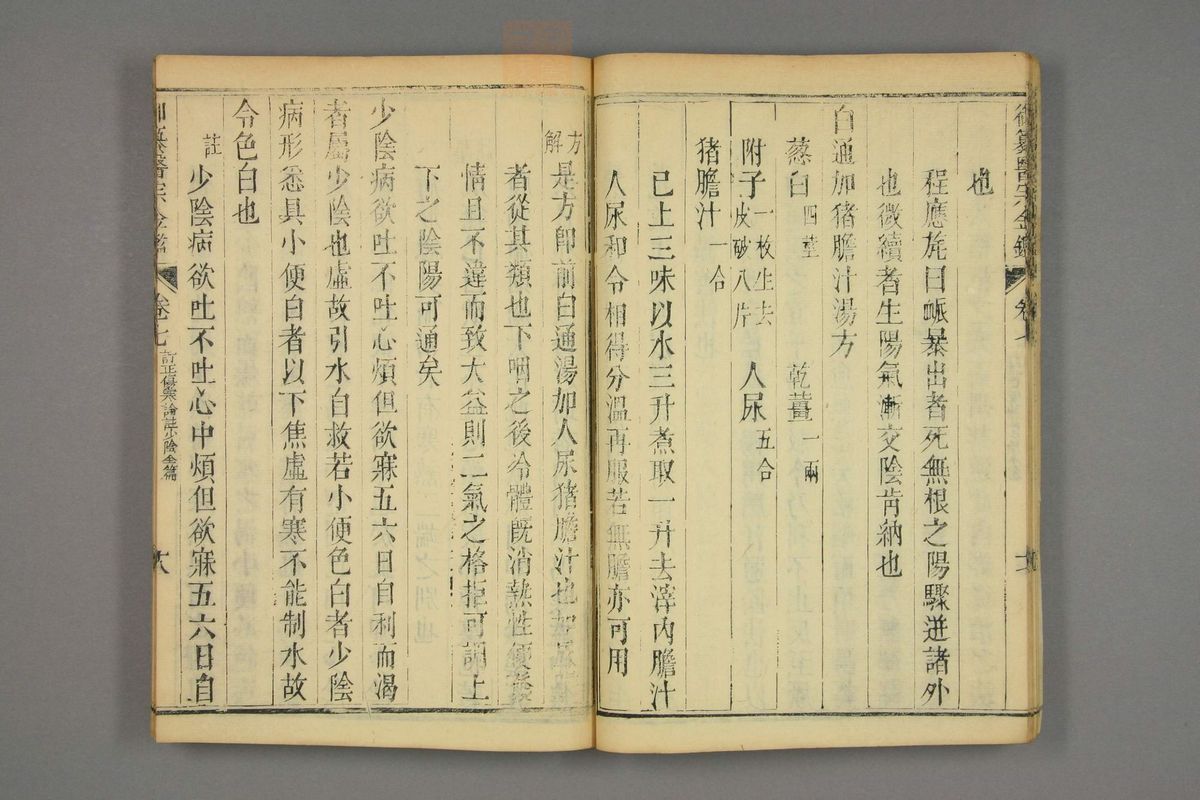 御纂醫宗金鑑 卷七
也
程應旄曰脈暴出者死無根之陽驟迸諸外
也微續者生陽氣漸交陰肯納也
白通加猪膽汁湯方
蔥白四莖 乾薑一兩
附子一枚生去皮破八片 人尿五合
猪膽汁一合
已上三味以水三升煮取一升去滓內膽汁
人尿和令相得分溫再服若無膽亦可用
方解 是方卽前白通湯加人尿猪膽汁也加尿
者從其類也下咽之後冷體旣消熱性便發
情且不違而致大益則二氣之格拒可調上
下之陰陽可通矣
少陰病欲吐不吐心煩但欲寐五六日自利而渴
者屬少陰也虛故引水自救若小便色白者少陰
病形悉具小便白者以下焦虛有寒不能制水故
令色白也
註 少陰病欲吐不吐心中煩但欲寐五六日自
御纂醫宗金鑑 卷七 訂正傷寒論註少陰全篇